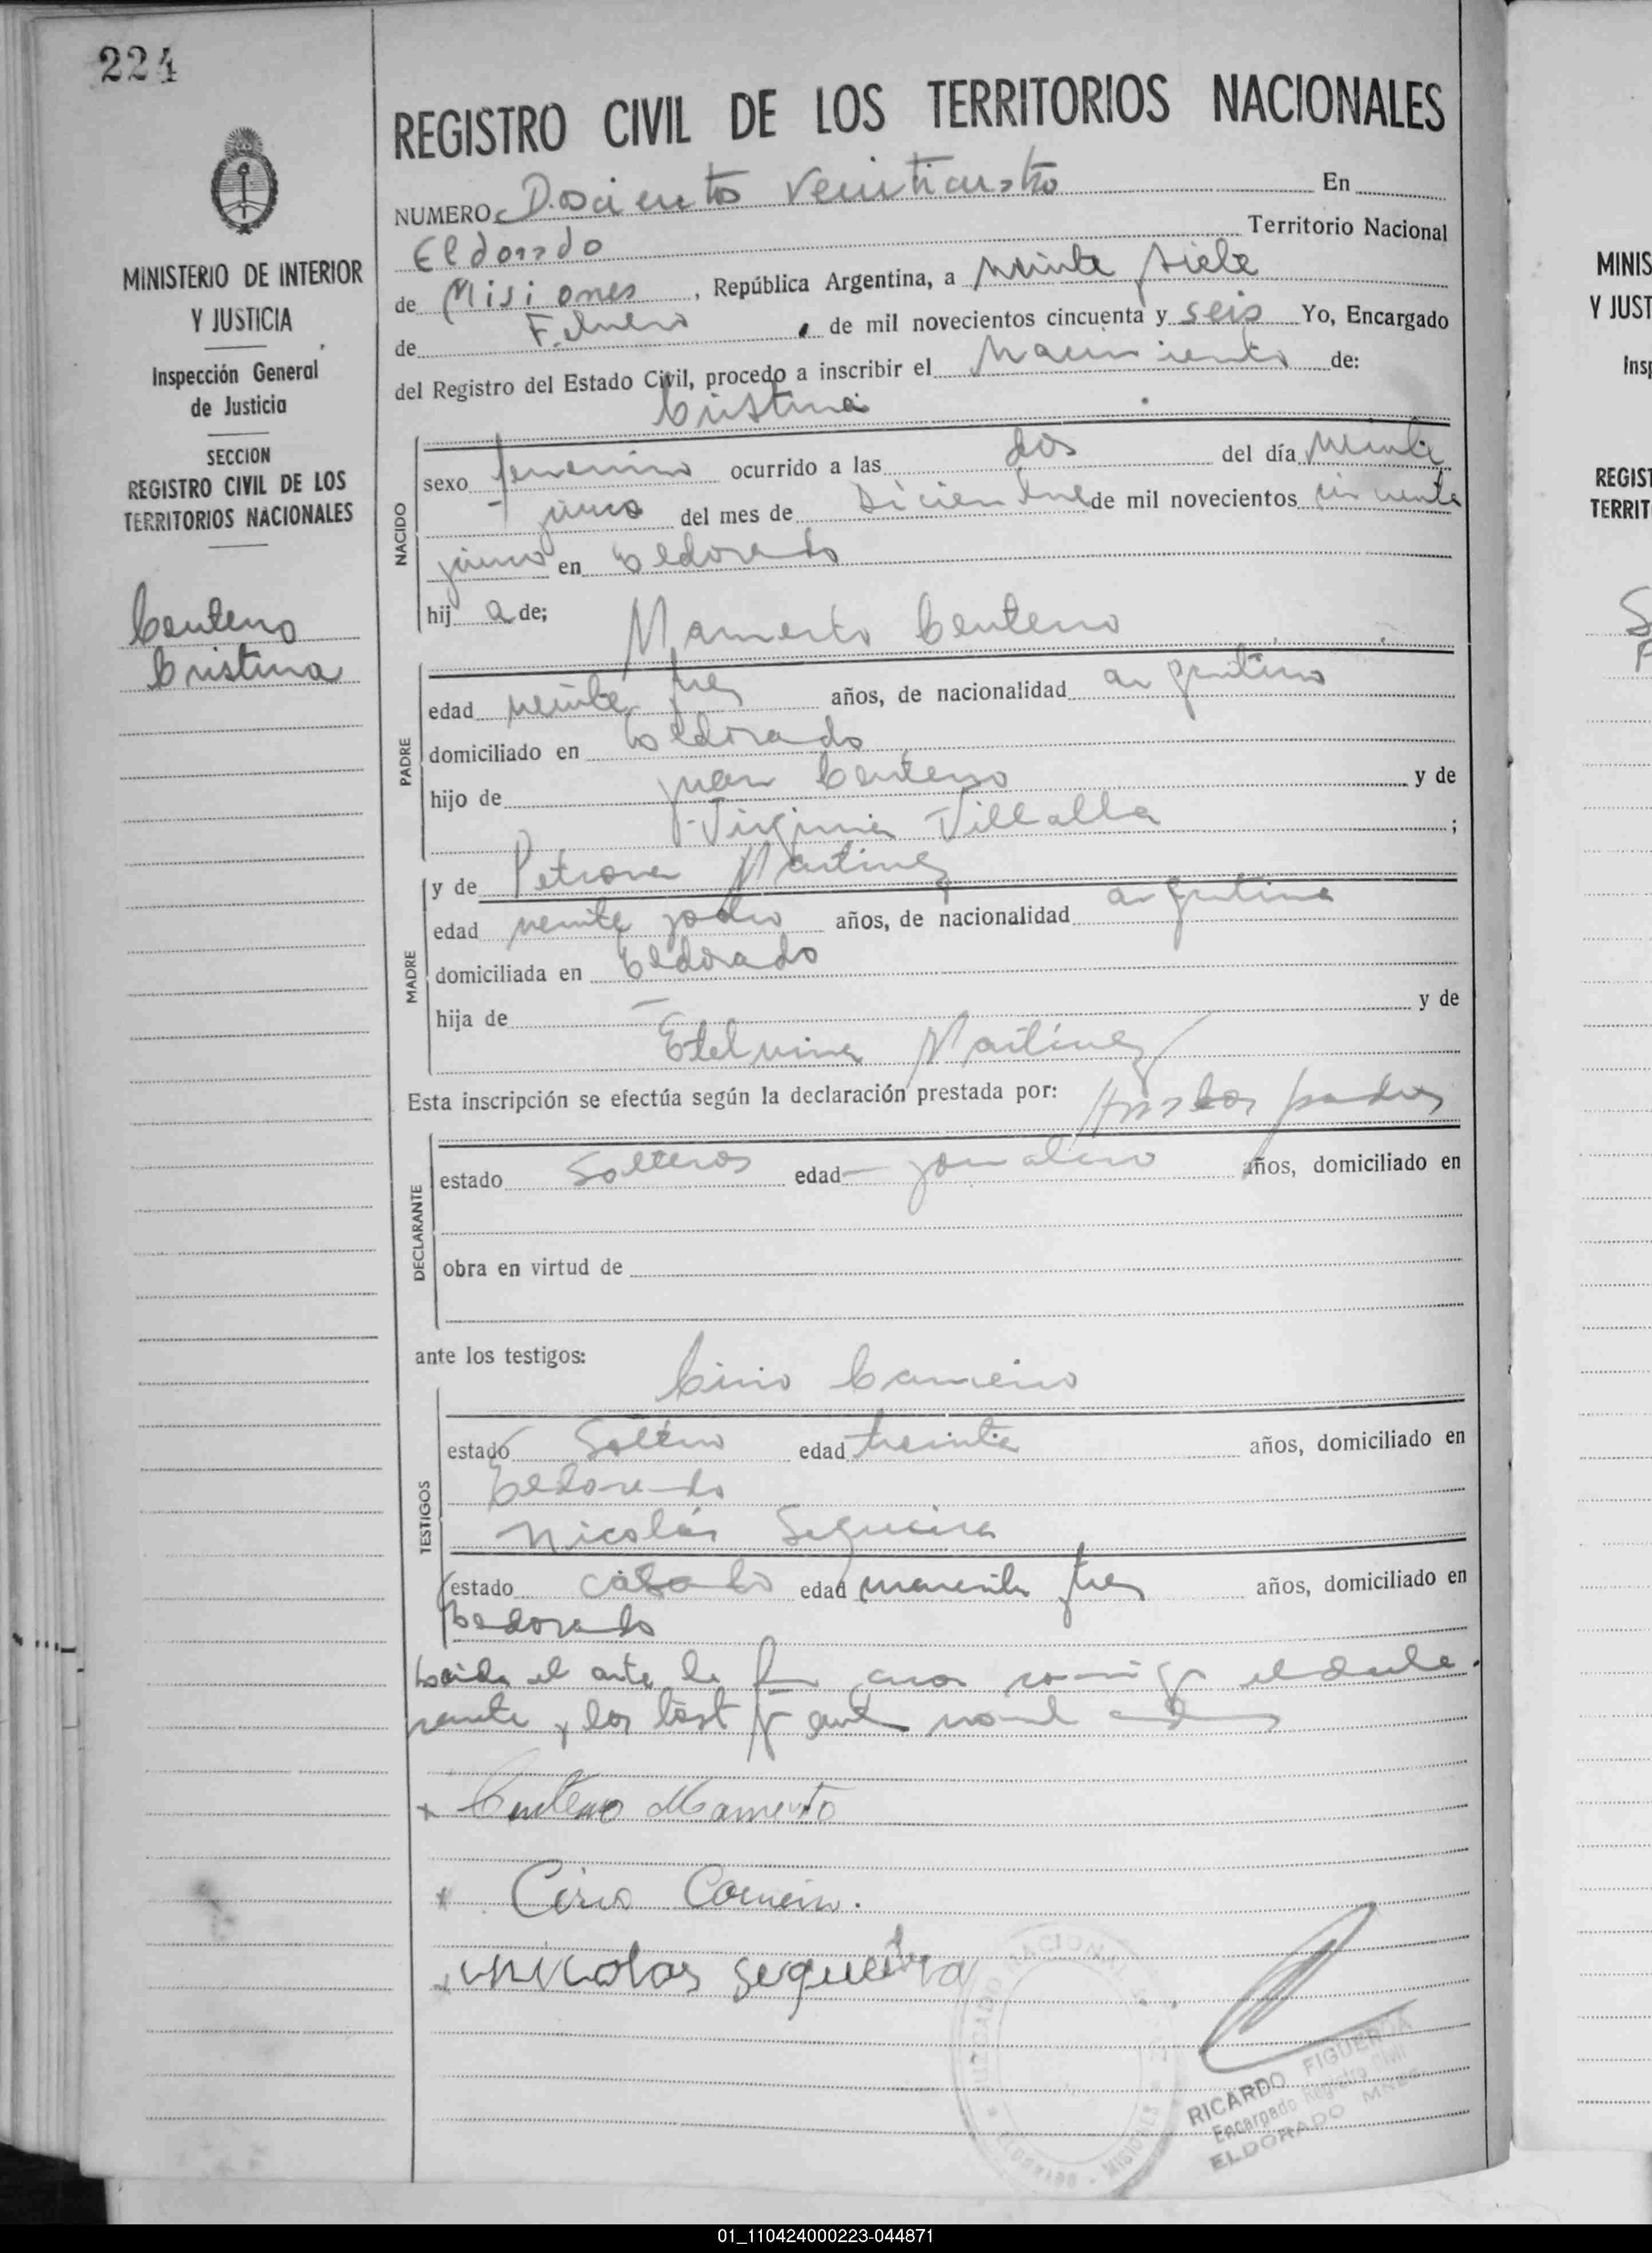 224
REGISTRO CIVIL DE LOS TERRITORIOS NACIONALES
NUMERO Dosciento Veinticuatro En
Eldorado Territorio Nacional
de Misiones, República Argentina, a veinte siete
de Febrero, de mil novecientos cincuenta y seis Yo, Encargado
del Registro del Estado Civil, procedo a inscribir el Nacimiento de:
Cristina
NACIDO
sexo femenino ocurrido a las dos del día veinti
cinco del mes de Diciembre de mil novecientos cincuenta
cinco en Eldorado
hij a de;
Mamerto Centeno
PADRE
edad veinte tres años, de nacionalidad argentino
domiciliado en Eldorado
hijo de Juan Centeno y de
Virginia Villalba ;
MADRE
y de Petrona Martinez
edad veinte años, de nacionalidad argentina
domiciliada en Eldorado
hija de — y de
Etelvina Martínez
Esta inscripción se efectúa según la declaración prestada por: Ambos padres
DECLARANTE
estado Solteros edad — jornalero años, domiciliado en
obra en virtud de
ante los testigos:
Cirio Carneiro
TESTIGOS
estado Soltero edad treinta años, domiciliado en
Eldorado
Nicolás Sequeira
estado casado edad cuarenta tres años, domiciliado en
Eldorado
Leida el acta la conmigo el decla
rante y los test
x Centeno Mamerto
x Cirio Carneiro.
x Nicolas sequeira
RICARDO FIGUEROA
Encargado Registro Civil
ELDORADO MNES
ELDORADO - MISIONES
MINISTERIO DE INTERIOR
Y JUSTICIA
Inspección General
de Justicia
SECCION
REGISTRO CIVIL DE LOS
TERRITORIOS NACIONALES
Centeno
Cristina
MINIS
Y JUST
Insp
REGIST
TERRIT
01_110424000223-044871